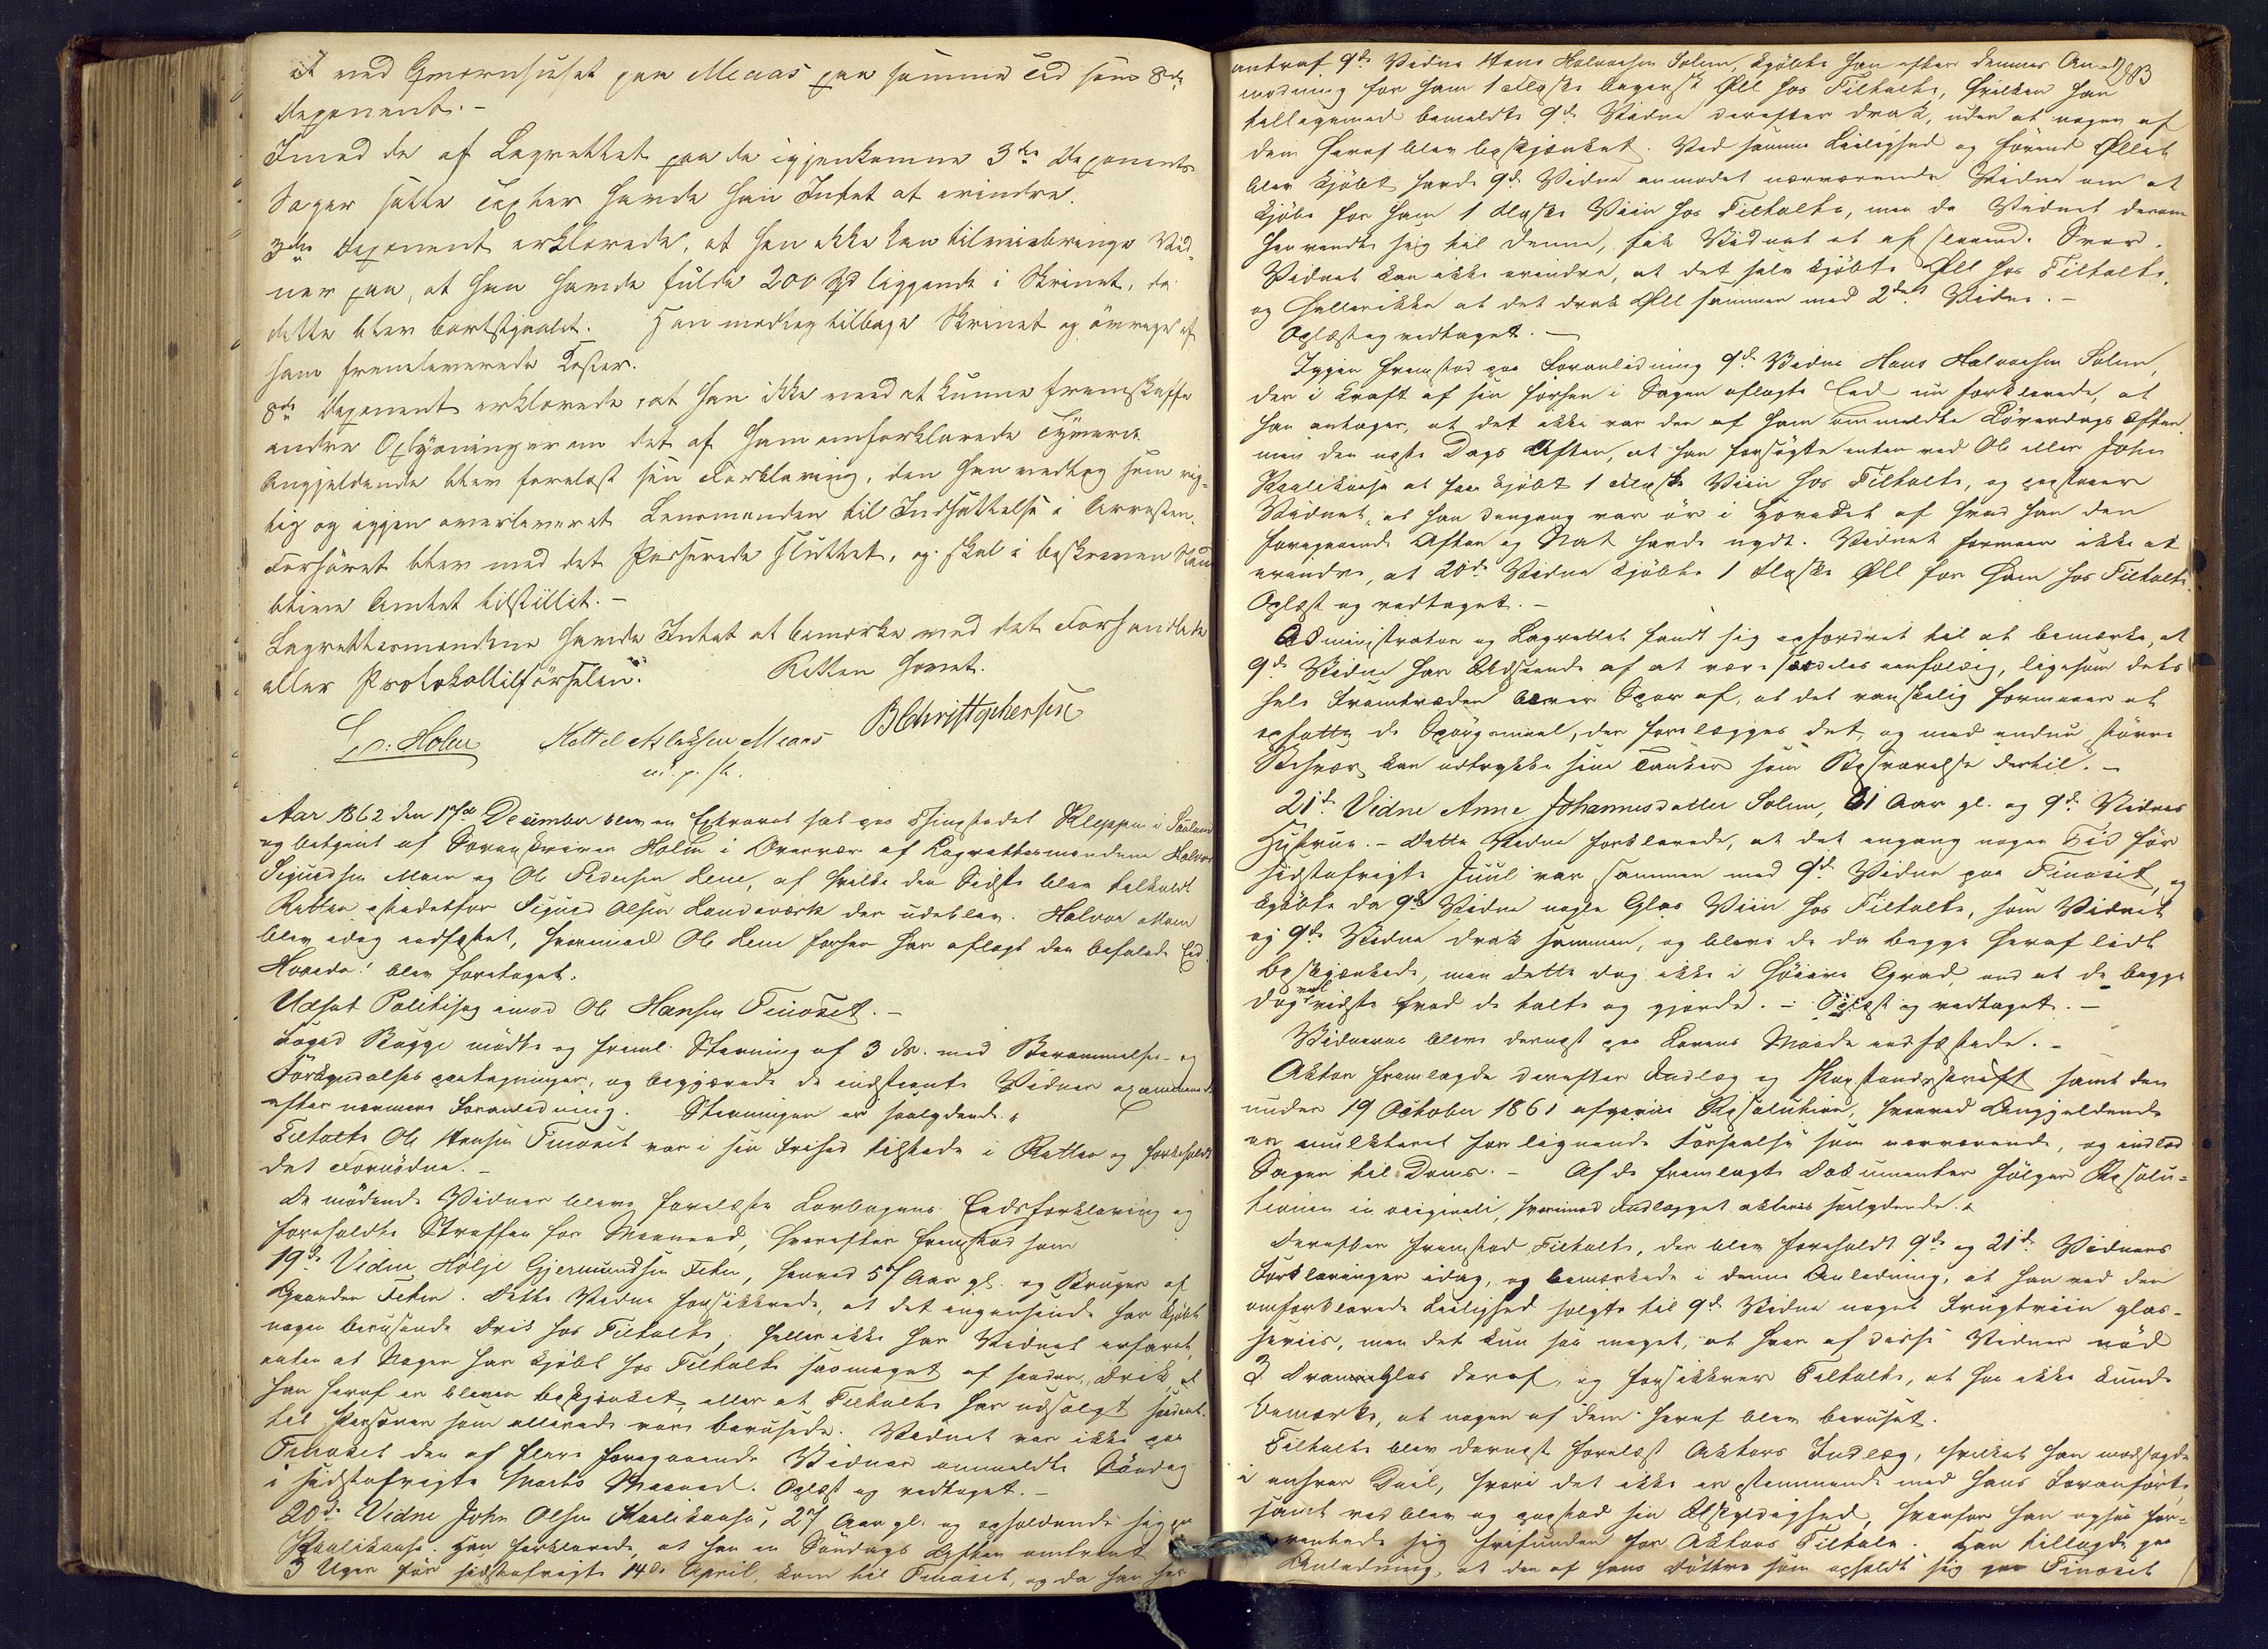 it ved Qværnhuset paa Meaas paa samme Tid som 8de
Deponent.-
Imod de af Lagrettet paa de igjenkomne 3die Deponents
Sager satte Taxter havde han Intet at erindre.
3die Deponent erklærede, at han ikke kan tilveiebringe Vid-
ner paa, at han havde fulde 200 Spd liggende i Skrinet, da
dette blev bortstjaalet. Han modtog tilbage Skrinet og övrige af
ham fremleverede Koster.
8de Deponent erklærede, at han ikke veed at kunne fremskaffe
andre Oplysninger om det af ham omforklarede Tyveri.
Angjeldende blev forelæst sin Forklaring, den han vedtog som rig-
tig og igjen overleveret Lensmanden til Indsættelse i Arresten.
Forhöret blev med det Passerede sluttet, og skal i beskreven Stand
blive Amtet tilstillet.-
Lagrettesmændene havde Intet at bemærke ved det Forhandlede
eller Protokoltilförselen. Retten hævet.
Holm Kettel Aslaksen Meaas BChristophersen
m. p. P.
Aar 1862 den 17de December blev en Extraret sat paa Thingstedet Kleppen i Sauland
og betjent af Sorenskriver Holm i Overvær af Lagrettesmændene Halvor
Sigurdsen Moen og Ole Pedersen Lene, af hvilke den Sidste blev tilkaldt
Retten istedetfor Sigurd Olsen Landsværk der udeblev. Halvor Moen
blev idag eedfæstet, hvorimod Ole Lene forhen har aflagt den befalede Eed.
Hvorda! blev foretaget.
Udsat Politisag imod Ole Hansen Tinoset.-
Foged Bugge mödte og freml. Stevning af 3 ds. med Berammelses- og
Forkyndelses paategninger, og begjærede de indstevnte Vidner examinerede
efter nærmere Foranledning. Stevningen er saalydende.
Tiltalte Ole Hansen Tinoset var i sin Frihed tilstede i Retten og foreholdt
det Fornödne.-
De mödende Vidner bleve forelæste Lovbogens Eedsforklaring og
foreholdte Straffen for Meeneed, hvorefter fremstod som
19de Vidne Hölje Gjermundsen Feten, henved 57 Aar gl. og Bruger af
Gaarden Feten. Dette Vidne forsikkrede, at det ingensinde har kjöbt
nogen berusende Drik hos Tiltalte; heller ikke har Vidnet erfaret,
enten at Nogen har kjöbt hos Tiltalte saameget af saadan Drik, at
han heraf er bleven beskjænket, eller at Tiltalte har udsolgt saadant
til Personer som allerede vare berusede. Vidnet var ikke paa
Tinoset den af flere foregaaende Vidner ommeldte Söndag
i sidstafvigte Marts Maaned. Oplæst og vedtaget.-
20de Vidne John Olsen Kaalikaasa, 27 Aar gl. og opholdende sig paa
Kaalikaasa. Han forklarede, at han en Söndags Aften omtrent
3 Uger för sidstafvigte 14de April, kom til Tinoset, og da han her
283
antraf 9de Vidne Hans Halvorsen Solem, kjöbte han efter dennes An-
modning for ham 1 Flaske baiersk Öll hos Tiltalte, hvilken han
tilligemed bemeldte 9de Vidne derefter drak, uden at nogen af
dem heraf blev beskjænket. Ved samme Leilighed og förend Öllet
blev kjöbt havde 9de Vidne anmodet nærværende Vidne om at
kjöbe for ham 1 Flaske Viin hos Tiltalte, men da Vidnet derom
henvendte sig til denne, fik Vidnet et afslaaende Svar.
Vidnet kan ikke erindre, at det selv kjöbte Öll hos Tiltalte,
og heller ikke at det drak Öll sammen med 2det Vidne.-
Oplæst og vedtaget.-
Igjen fremstod paa Foranledning 9de Vidne Hans Halvorsen Solem,
der i Kraft af sin forhen i Sagen aflagte Eed nu forklarede, at
han antager, at det ikke var den af ham ommeldte Löverdags Aften
men den næste Dags Aften, at han forsögte enten ved Ole eller John
Kaalikaasa at faa kjöbt 1 Flaske Viin hos Tiltalte, og paastaaer
Vidnet, at han dengang var ör i Hovedet af hvad han den
foregaaende Aften og Nat havde nydt. Vidnet formaaer ikke at
erindre, at 20de Vidne kjöbte 1 Flaske Öll for ham hos Tiltalte.
Oplæst og vedtaget.-
Administrator og Lagrettet fandt sig opfordret til at bemærke, at
9de Vidne har Udseende af at være særdeles eenfoldig, ligesom dets
hele Fremtræden bærer Spor af, at det vanskelig formaaer at
opfatte de Spörgsmaal, der forelægges det, og med endnu större
Besvær kan udtrykke sine Tanker som Besvarelse dertil.-
21de Vidne Anne Johannesdatter Solem, 61 Aar gl. og 9de Vidnes
Hustrue.- Dette Vidne forklarede, at det engang nogen Tid för
sidstafvigte Juul var sammen med 9de Vidne paa Tinoset, og
kjöbte da 9de Vidne nogle Glas Viin hos Tiltalte, som Vidnet
og 9de Vidne drak sammen, og bleve de da begge heraf lidt
beskjænkede, men dette dog ikke i höiere Grad, end at de begge
dog vel vidste hvad de talte og gjorde.- Oplæst og vedtaget.-
Vidnerne bleve dernæst paa Lovens Maade eedfæstede.-
Aktor fremlagde derefter Indlæg og Paastandsskrift samt den
under 19 October 1861 afgivne Resolution, hvorved Angjeldende
er mulkteret for lignende Forseelse som nærværende, og indlod
Sagen til Doms.- Af de fremlagte Dokumenter fölger Resolu-
tionen in originali, hvorimod Indlægget akteres saalydende.
Derefter fremstod Tiltalte, der blev foreholdt 9de og 21de Vidners
Forklaringer idag, og bemærkede i denne Anledning, at han ved den
omforklarede Leilighed solgte til 9de Vidne noget Frugtviin glas-
seviis, men det kun saa meget, at hver af disse Vidner nöd
3 Dramglas deraf, og forsikkrer Tiltalte, at han ikke kunde
bemærke, at nogen af dem heraf blev beruset.
Tiltalte blev dernæst forelæst Aktors Indlæg, hvilket han modsagde
i enhver Deel, hvori det ikke er stemmende med hans Foranförte,
samt ved blev og paastod sin Uskyldighed, hvorfor han ogsaa for-
ventede sig frifunden for Aktors Tiltale. Han tillagde paa
Anledning, at den af hans Döttre som opholdt sig paa Tinoset